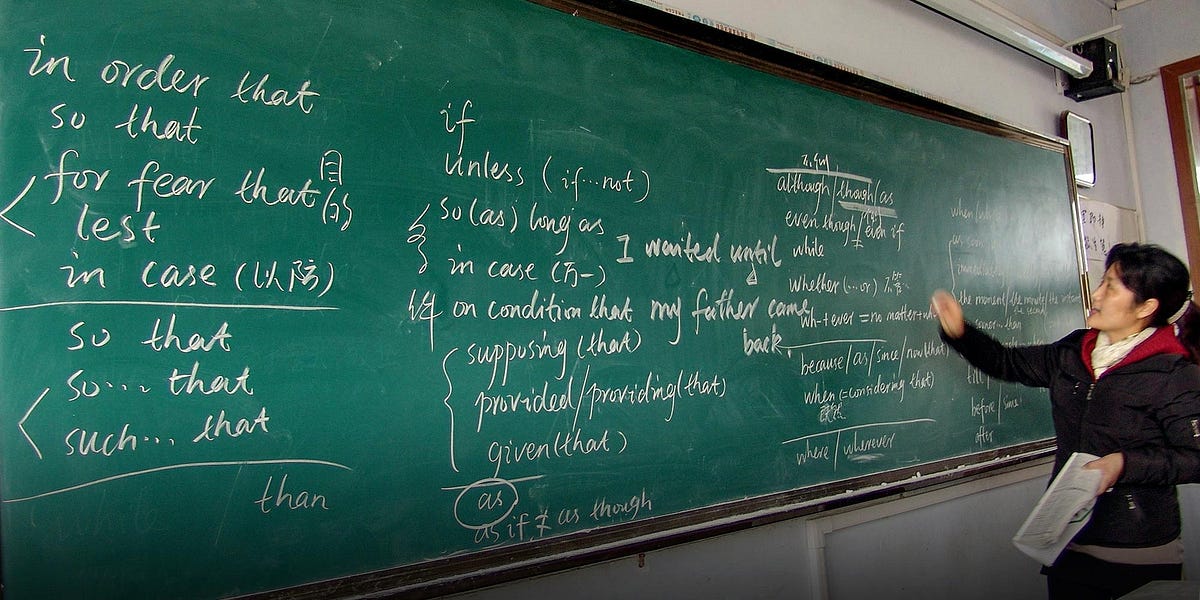 in order that
so that
for fear that 目
lest (的)
in case (以防)
so that
so... that
such... that
than
if
unless (if...not)
so (as) long as
in case (万一)
on condition that
supposing (that)
provided/providing (that)
given (that)
as
as if ≠ as though
I wanted until
my father came
back.
although/though/as
even though/even if
while
whether (...or)
wh-+ever = no matter+wh-
because/as/since/now (that)
when (=considering that)
where/wherever
when/
as soon
the moment/the minute/the
than
before/since
after